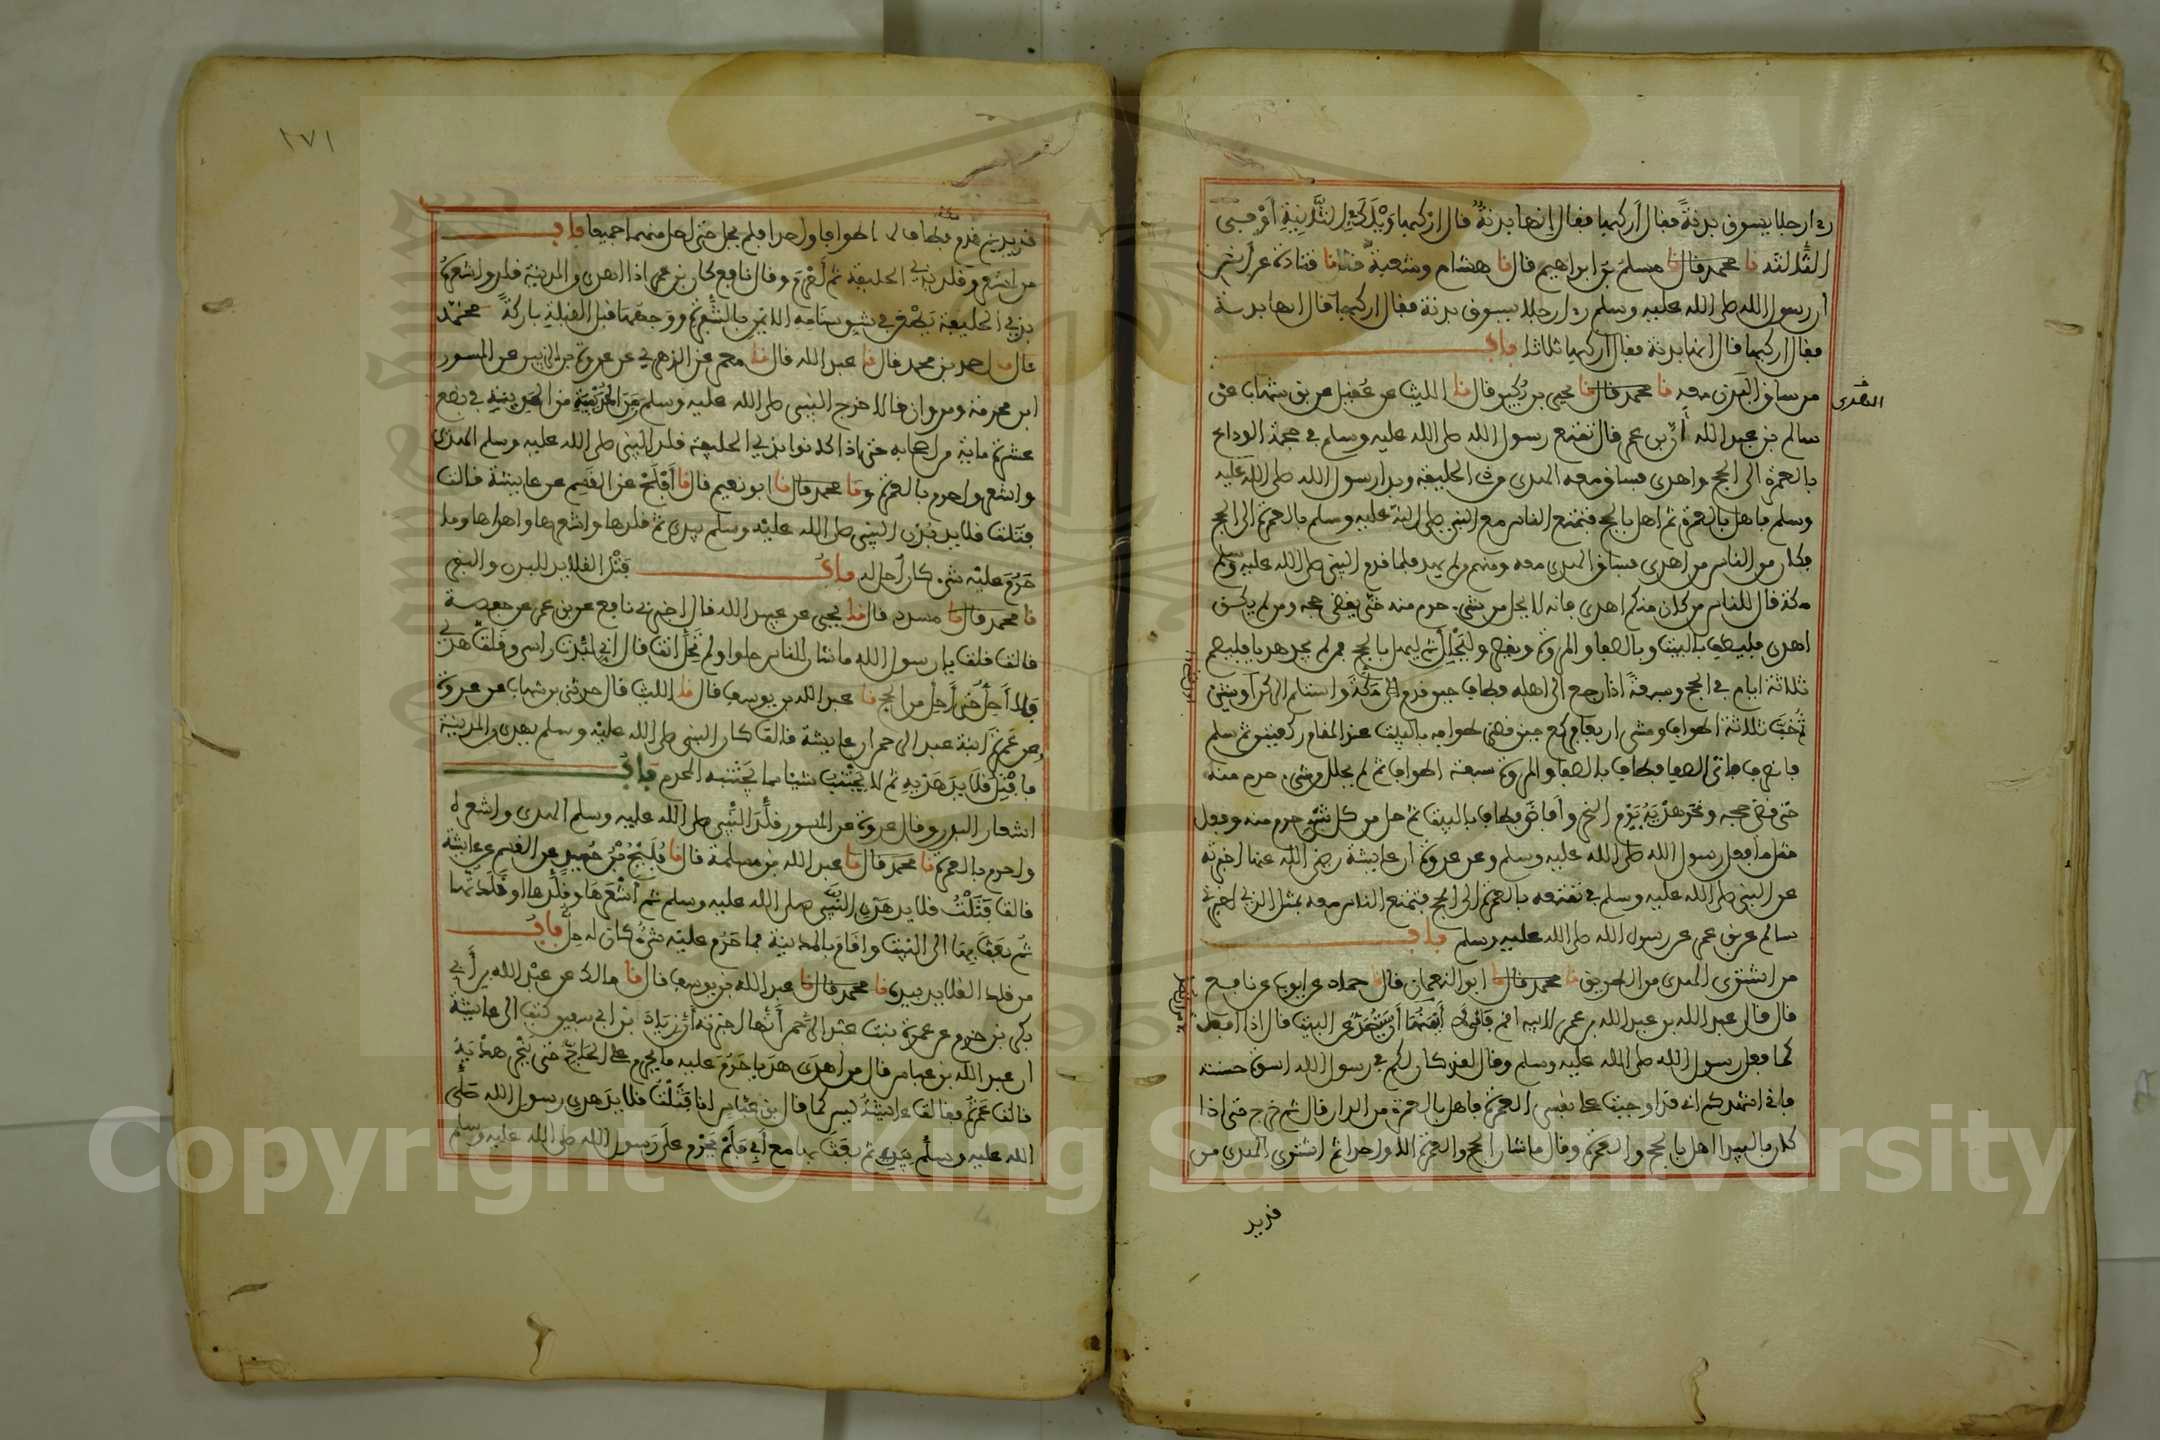 رءا رجلا يسوق بدنة فقال اركبها فقال إنها بدنة قال اركبها ويلك في الثانية أو في
الثالثة نا محمد قال نا مسلم بن ابراهيم قال نا هشام وشعبة قالا نا قتادة عن أنس
أن رسول الله صلى الله عليه وسلم رءا رجلا يسوق بدنة فقال اركبها قال انها بدنة
فقال اركبها قال انها بدنة فقال اركبها ثلاثا باب
من ساق البدن معه نا محمد قال نا يحيى بن بكير قال نا الليث عن عقيل عن بن شهاب عن
سالم بن عبد الله أن بن عمر قال تمتع رسول الله صلى الله عليه وسلم في حجة الوداع
بالعمرة الى الحج واهدى فساق معه الهدي من ذي الحليفة وبدأ رسول الله صلى الله عليه
وسلم فاهل بالعمرة ثم اهل بالحج فتمتع الناس مع النبي صلى الله عليه وسلم بالعمرة الى الحج
فكان من الناس من اهدى فساق الهدي معه ومنهم من لم يهد فلما قدم النبي صلى الله عليه وسلم
مكة قال للناس من كان منكم اهدى فانه لا يحل من شيء حرم منه حتى يقضي حجه ومن لم يكن
اهدى فليطف بالبيت وبالصفا والمروة ويقصر وليحلل ثم ليهل بالحج فمن لم يجد هديا فليصم
ثلاثة ايام في الحج وسبعة اذا رجع الى اهله فطاف حين قدم الى مكة واستلم الركن أول شيء
ثم خب ثلاثة اطواف ومشى اربعا فركع حين قضى طوافه بالبيت عند المقام ركعتين ثم سلم
فانصرف فاتى الصفا فطاف بالصفا والمروة سبعة اطواف ثم لم يحلل من شيء حرم منه
حتى قضى حجه ونحر هديه يوم النحر وأفاض فطاف بالبيت ثم حل من كل شيء حرم منه وفعل
مثل ما فعل رسول الله صلى الله عليه وسلم وعن عروة ان عايشة رضي الله عنها اخبرته
عن النبي صلى الله عليه وسلم في تمتعه بالعمرة الى الحج فتمتع الناس معه بمثل الذي اخبرني
سالم عن بن عمر عن رسول الله صلى الله عليه وسلم باب
من اشترى الهدي من الطريق نا محمد قال نا ابو النعمان قال نا حماد عن ايوب عن نافع
قال قال عبد الله بن عبد الله بن عمر لابيه اقم فاني لا آمنها أن ستصد عن البيت قال اذا افعل
كما فعل رسول الله صلى الله عليه وسلم وقال لقد كان لكم في رسول الله اسوة حسنة
فانا اشهدكم اني قد اوجبت على نفسي العمرة فاهل بالعمرة من الدار قال ثم خرج حتى اذا
كان بالبيدا اهل بالحج والعمرة وقال ما شان الحج والعمرة الا واحد ثم اشترى الهدي من
قديد
١٧١
قديد ثم قدم فطاف لهما طوافا واحدا فلم يحل حتى احل منهما جميعا باب
من اشعر وقلد بذي الحليفة ثم أحرم وقال نافع كان بن عمر اذا اهدى من المدينة قلده واشعره
بذي الحليفة يطعن في شق سنامه الايمن بالشفرة ووجهها قبل القبلة باركة محمد
قال نا احمد بن محمد قال نا عبد الله قال نا معمر عن الزهري عن عروة بن الزبير عن المسور
ابن مخرمة ومروان قالا خرج النبي صلى الله عليه وسلم من الحديبية من المدينة في بضع
عشرة ماية من اصحابه حتى اذا كانوا بذي الحليفة قلد النبي صلى الله عليه وسلم الهدي
واشعر واحرم بالعمرة ونا محمد قال نا ابو نعيم قال نا أفلح عن القسم عن عايشة قالت
فتلت قلايد بدن النبي صلى الله عليه وسلم بيدي ثم قلدها واشعرها واهداها وما
حرم عليه شيء كان أحل له باب فتل القلايد للبدن والبقر
نا محمد قال نا مسدد قال نا يحيى عن عبيد الله قال اخبرني نافع عن بن عمر عن حفصة
قالت قلت يا رسول الله ما شان الناس حلوا ولم تحل انت قال اني لبدت راسي وقلدت هديي
فلا أحل حتى أحل من الحج نا عبد الله بن يوسف قال نا الليث قال حدثني بن شهاب عن عروة
وعن عمرة ابنة عبد الرحمن ان عايشة قالت كان النبي صلى الله عليه وسلم يهدي من المدينة
فافتل قلايد هديه ثم لا يجتنب شيئا مما يجتنبه المحرم باب
اشعار البدن وقال عروة عن المسور قلد النبي صلى الله عليه وسلم الهدي واشعره
واحرم بالعمرة نا محمد قال نا عبد الله بن مسلمة قال نا أفلح بن حميد عن القسم عن عايشة
قالت فتلت قلايد هدي النبي صلى الله عليه وسلم ثم أشعرها وقلدها او قلدتها
ثم بعث بها الى البيت واقام بالمدينة فما حرم عليه شيء كان له حل باب
من قلد القلايد بيده نا محمد قال نا عبد الله بن يوسف قال نا مالك عن عبد الله بن أبي
بكر بن حزم عن عمرة بنت عبد الرحمن أنها اخبرته أن زياد بن ابي سفين كتب الى عايشة
ان عبد الله بن عباس قال من أهدى هديا حرم عليه ما يحرم على الحاج حتى ينحر هديه
قالت عمرة فقالت عايشة ليس كما قال بن عباس انا فتلت قلايد هدي رسول الله صلى
الله عليه وسلم بيدي ثم بعث بها مع أبي فلم يحرم على رسول الله صلى الله عليه وسلم
Copyright © King Saud University